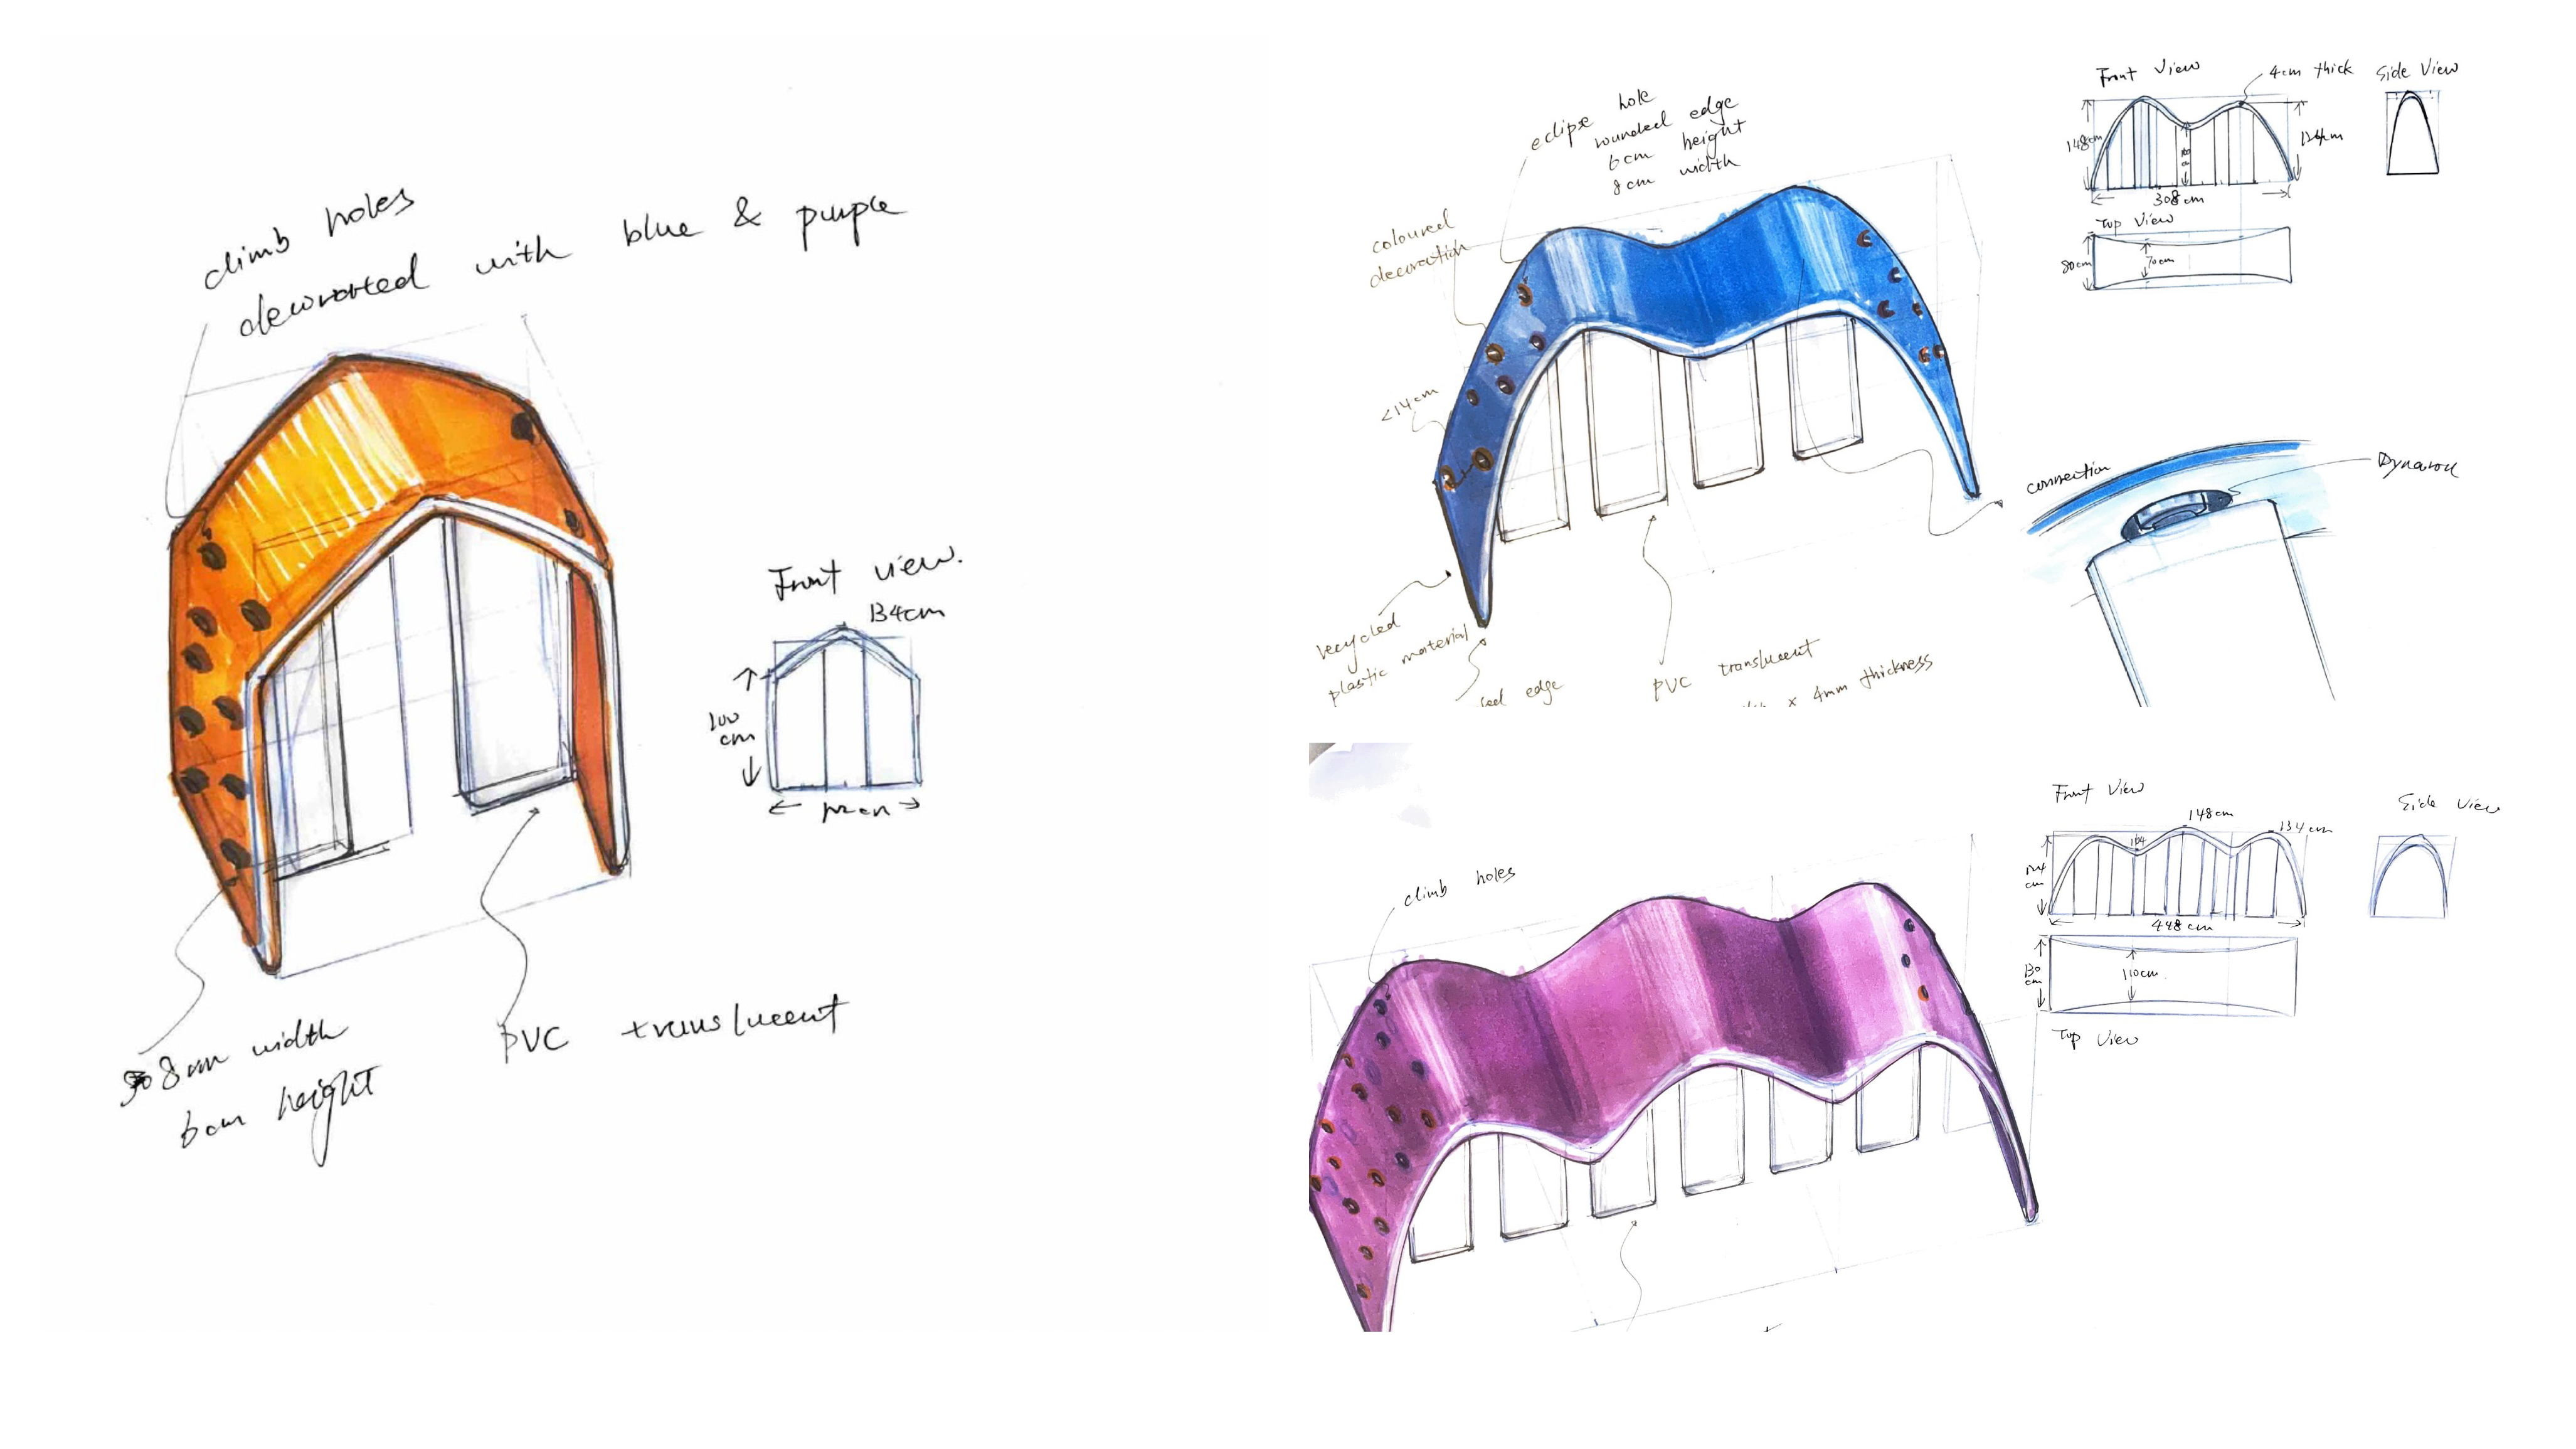 climb holes
decorated with blue & purple
Front view.
134cm
100
cm
8cm width
6cm height
PVC translucent
eclipse hole
rounded edge
6cm height
8cm width
coloured
decoration
<14cm
recycled
plastic material
edge
PVC translucent
x 4mm thickness
Front View
4cm thick
Side View
148cm
308cm
Top View
80cm
70cm
connection
climb holes
Front View
148cm
134cm
Side View
104
cm
448cm
130
cm
110cm
Top View